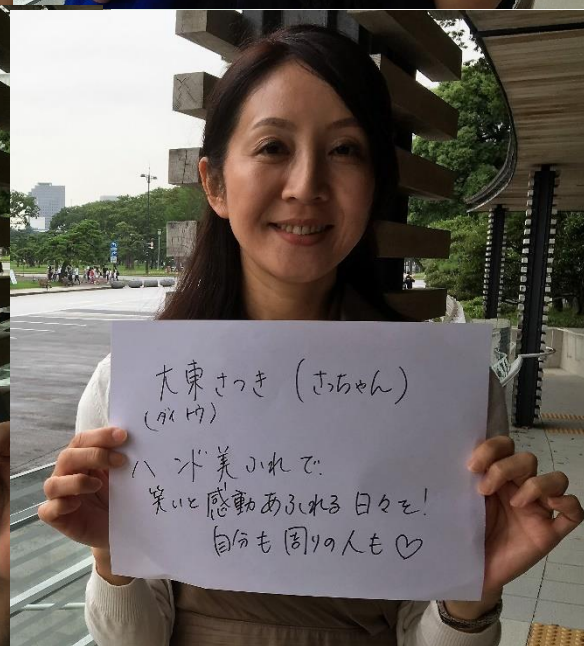 大東さつき (さっちゃん)
(ダイトウ)
ハンド美ふれで
笑いと感動あふれる日々を!
自分も周りの人も♡